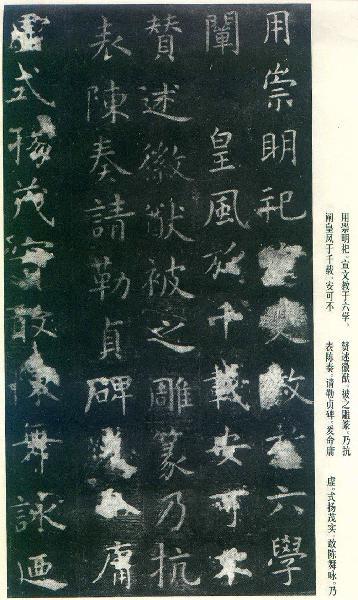 用崇明祀宣文教於六學
闡皇風於千載安可不
贊述徽猷被之雕篆乃抗
表陳奏請勒貞碑爰命庸
虛式揚茂實敢陳舞詠迺
用崇明祀。宣文教于六学，
阐皇风于千载，安可不
赞述徽猷，被之雕篆。乃抗
表陈奏，请勒贞碑。爰命庸
虚。式扬茂实，敢陈舞咏。乃